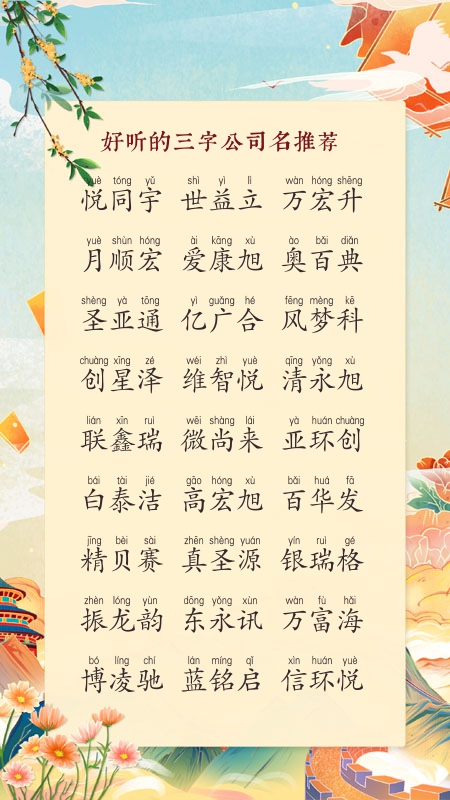 好听的三字公司名推荐
yuè tóng yǔ shì yì lì wàn hóng shēng
悦同宇 世益立 万宏升
yuè shùn hóng ài kāng xù ào bǎi diǎn
月顺宏 爱康旭 奥百典
shèng yà tōng yì guǎng hé fēng mèng kē
圣亚通 亿广合 风梦科
chuàng xīng zé wéi zhì yuè qīng yǒng xù
创星泽 维智悦 清永旭
lián xīn ruì wēi shàng lái yà huán chuàng
联鑫瑞 微尚来 亚环创
bái tài jié gāo hóng xù bǎi huá fā
白泰洁 高宏旭 百华发
jīng bèi sài zhēn shèng yuán yín ruì gé
精贝赛 真圣源 银瑞格
zhèn lóng yùn dōng yǒng xùn wàn fù hǎi
振龙韵 东永讯 万富海
bó líng chí lán míng qǐ xìn huán yuè
博凌驰 蓝铭启 信环悦